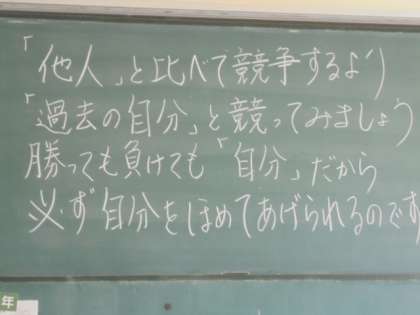 「他人」と比べて競争するより
「過去の自分」と競ってみましょう
勝っても負けても「自分」だから
必ず自分をほめてあげられるのです
年